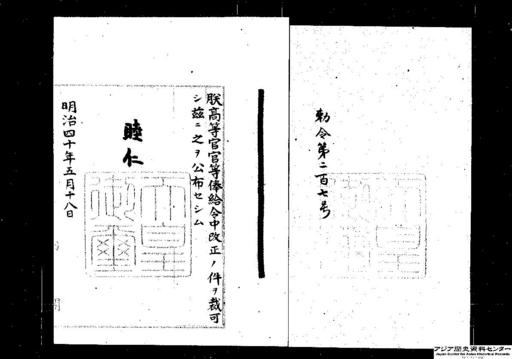 勅令第二百七号
朕高等官官等俸給令中改正ノ件ヲ裁可
シ茲ニ之ヲ公布セシム
睦仁
天皇御璽
明治四十年五月十八日
アジア歴史資料センター
Japan Center for Asian Historical Records